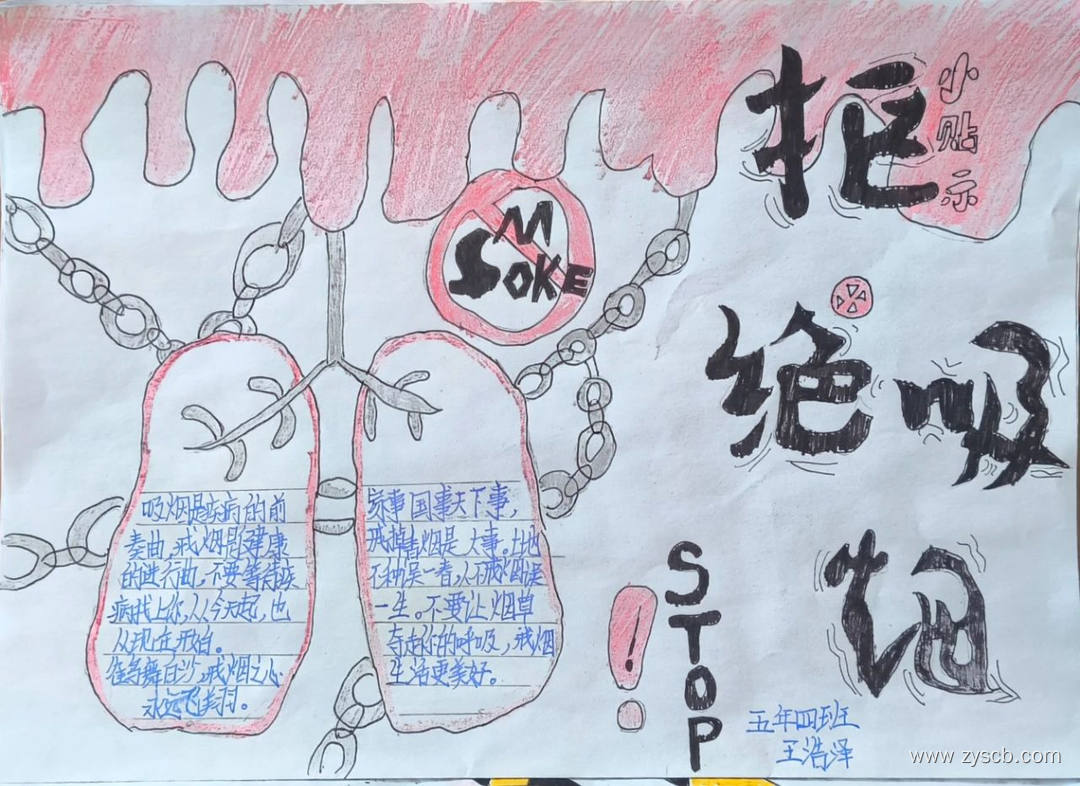 拒
小贴示
绝吸
烟
SmOKE
吸烟是疾病的前
奏曲,戒烟是健康
的进行曲,不要等待疾
病找上你,从今天起,也
从现在开始。
鹤舞白沙,戒烟之心
永远飞翔。
家事国事天下事,
戒掉香烟是大事。土地
不种误一春,人不戒烟误
一生。不要让烟草
夺走你的呼吸,戒烟
生活更美好。
!
STOP
五年四班
王浩泽
www.zyscb.com